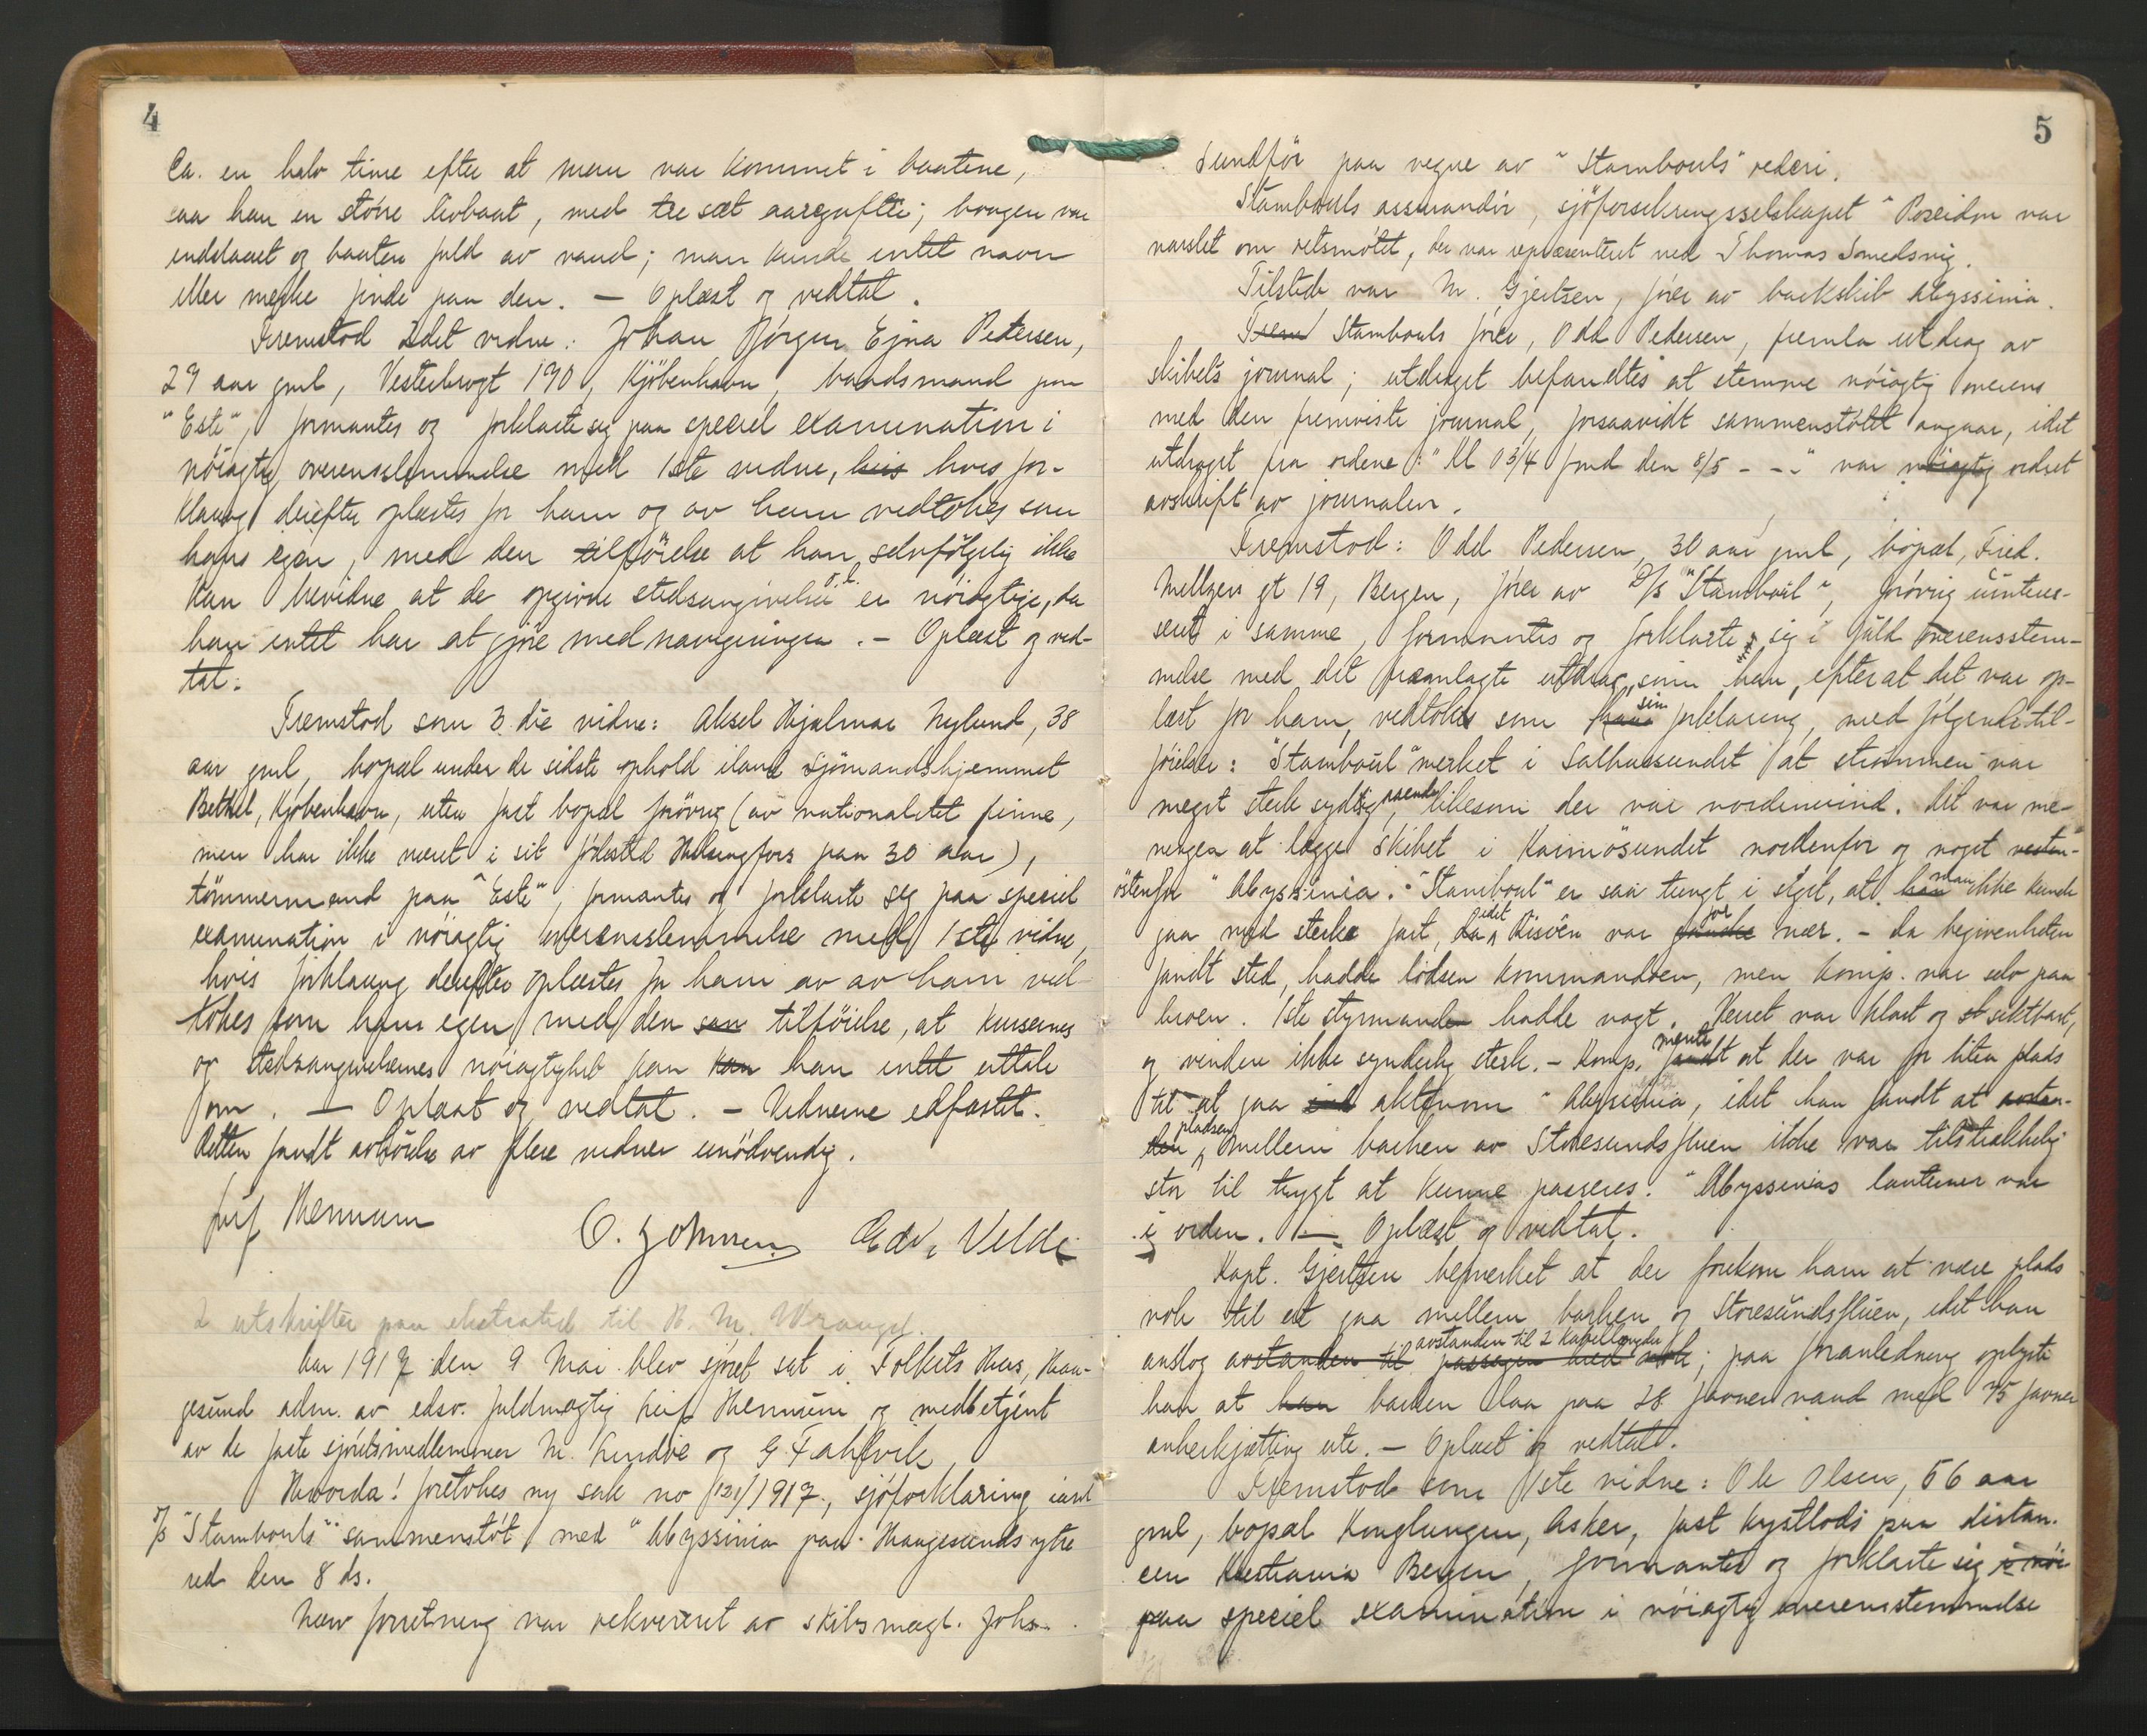 4
Ca. en halv time efter at man var kommet i baatene,
saa han en större livbaat, med tre sæt aaregafler; bougen var
indslaaet og baaten fuld av vand; man kunde intet navn
eller merke finde paa den. — Oplæst og vedtat.
Fremstod 2det vidne: Johan Jörgen Ejna Petersen,
29 aar gml, Vesterbrogt 190, Kjöbenhavn, baadsmand paa
"Este", formantes og forklarte sig paa speciel examination i
nöiagtig overensstemmelse med 1ste vidne, hvis for-
klaring derefter oplæstes for ham og av ham vedtokes som
hans egen, med den tilföielse at han selvfölgelig ikke
kan bevidne at de opgivne stedsangivelser o.l. er nöiagtige, da
han intet har at gjöre med navigeringen. — Oplæst og ved-
tat.
Fremstod som 3.die vidne: Aksel Hjalmar Nylund, 38
aar gml, bopæl under de sidste ophold iland Sjömandshjemmet
Bethel, Kjöbenhavn, uten fast bopæl forövrig (av nationalitet finne,
men har ikke været i sit födested Helsingfors paa 30 aar),
tömmermand paa "Este", formantes og forklarte seg paa speciel
examination i nöiagtig overensstemmelse med 1ste vidne,
hvis forklaring derefter oplæstes for ham av av ham ved-
tokes som hans egen med den som tilföielse, at kursernes
og stedsangivelsernes nöiagtighet kan kan han intet uttale
om. — Oplæst og vedtat. — Vidnerne edfæstet.
Retten fandt avhörelse av flere vidner unödvendig.
Leif Hennum O. Johnsen Edv. Velde
2 utskrifter paa ekstratid til H. M. Wrangel.
Aar 1917 den 9 Mai blev sjöret sat i Folkets Hus, Hau-
gesund adm. av edsv. fuldmægtig Leif Hennum og medbetjent
av de faste sjöretsmedlemmer M. Lindöe og G. Fahlvik
Hvorda! foretokes ny sak no 121/1917, sjöforklaring i anl
D/S "Stambouls" sammenstöt med "Abyssinia paa Haugesunds ytre
red den 8 ds.
Nærv forretning var rekvireret av skibsmægl. Johs.
5
Sundför paa vegne av "Stambouls" rederi.
Stambouls assurandör, sjöforsikringsselskapet "Poseidon var
varslet om retsmötet, der var repræsenteret ved Thomas Smedsvig.
Tilstede var M. Gjertsen, förer av barkskib Abyssinia.
Frem Stambouls förer, Odd Pedersen, fremla utdrag av
skibets journal; utdraget befandtes at stemme nöiagtig overens
med den fremviste journal, forsaavidt sammenstötet angaar, idet
utdraget fra ordene: "Kl 0 3/4 fmd den 8/5 - -" var nöiagtig ordret
avskrift av journalen.
Fremstod: Odd Pedersen, 30 aar gml, bopæl, Fred.
Meltzers gt 19, Bergen, förer av D/S "Stamboul", forövrig uinteres-
sert i samme, formantes og forklarte sig i fuld overensstem-
melse med det fremlagte utdrag, som han, efterat det var op-
læst for ham, vedtokes som hans sin forklaring, med fölgende til-
föielse: "Stamboul" merket i Salhussundet at strömmen var
meget sterk sydligpaaende, likesom der var nordenvind. Det var me-
ningen at lægge skibet i Karmösundet nordenfor og noget vesten-
östenfor "Abyssinia". "Stamboul" er saa tungt i siget, at han man ikke kunde
gaa med sterke fart, da idet Risöen var ganske for nær. — da begivenheten
fandt sted, hadde lodsen kommandoen, men komp. var selv paa
broen. 1ste styrmanden hadde vagt. Veiret var klart og st siktbart,
og vinden ikke synderlig sterk. — Komp. fandt mente at der var for liten plads
til at gaa aktenom "Abyssinia, idet han fandt at avstan-
den pladsen mellem barken av Storesundsfluen ikke var tilstrækkelig
stor til trygt at kunne passeres. "Abyssinias lanterner var
i orden. — Oplæst og vedtat.
Kapt. Gjertsen bemerket at der forekom ham at være plads
nok til at gaa mellem barken og Storesundsfluen, idet han
anslog avstanden til passagen med nok avstanden til 2 kabellængder; paa foranledning oplyste
han at han barken laa paa 28 favner vand med 75 favner
ankerkjætting ute. — Oplæst og vedtatt.
Fremstod som 1ste vidne: Ole Olsen, 56 aar
gml, bopæl Konglungen, Asker, fast kystlods paa distan-
cen Kristiania Bergen, formantes og forklarte sig i nöi
paa speciel examination i nöiagtig overensstemmelse